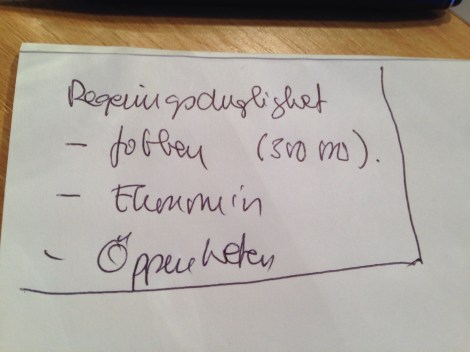 Regeringsduglighet
- Jobben (300 000).
- Ekonomin
- Öppenheten